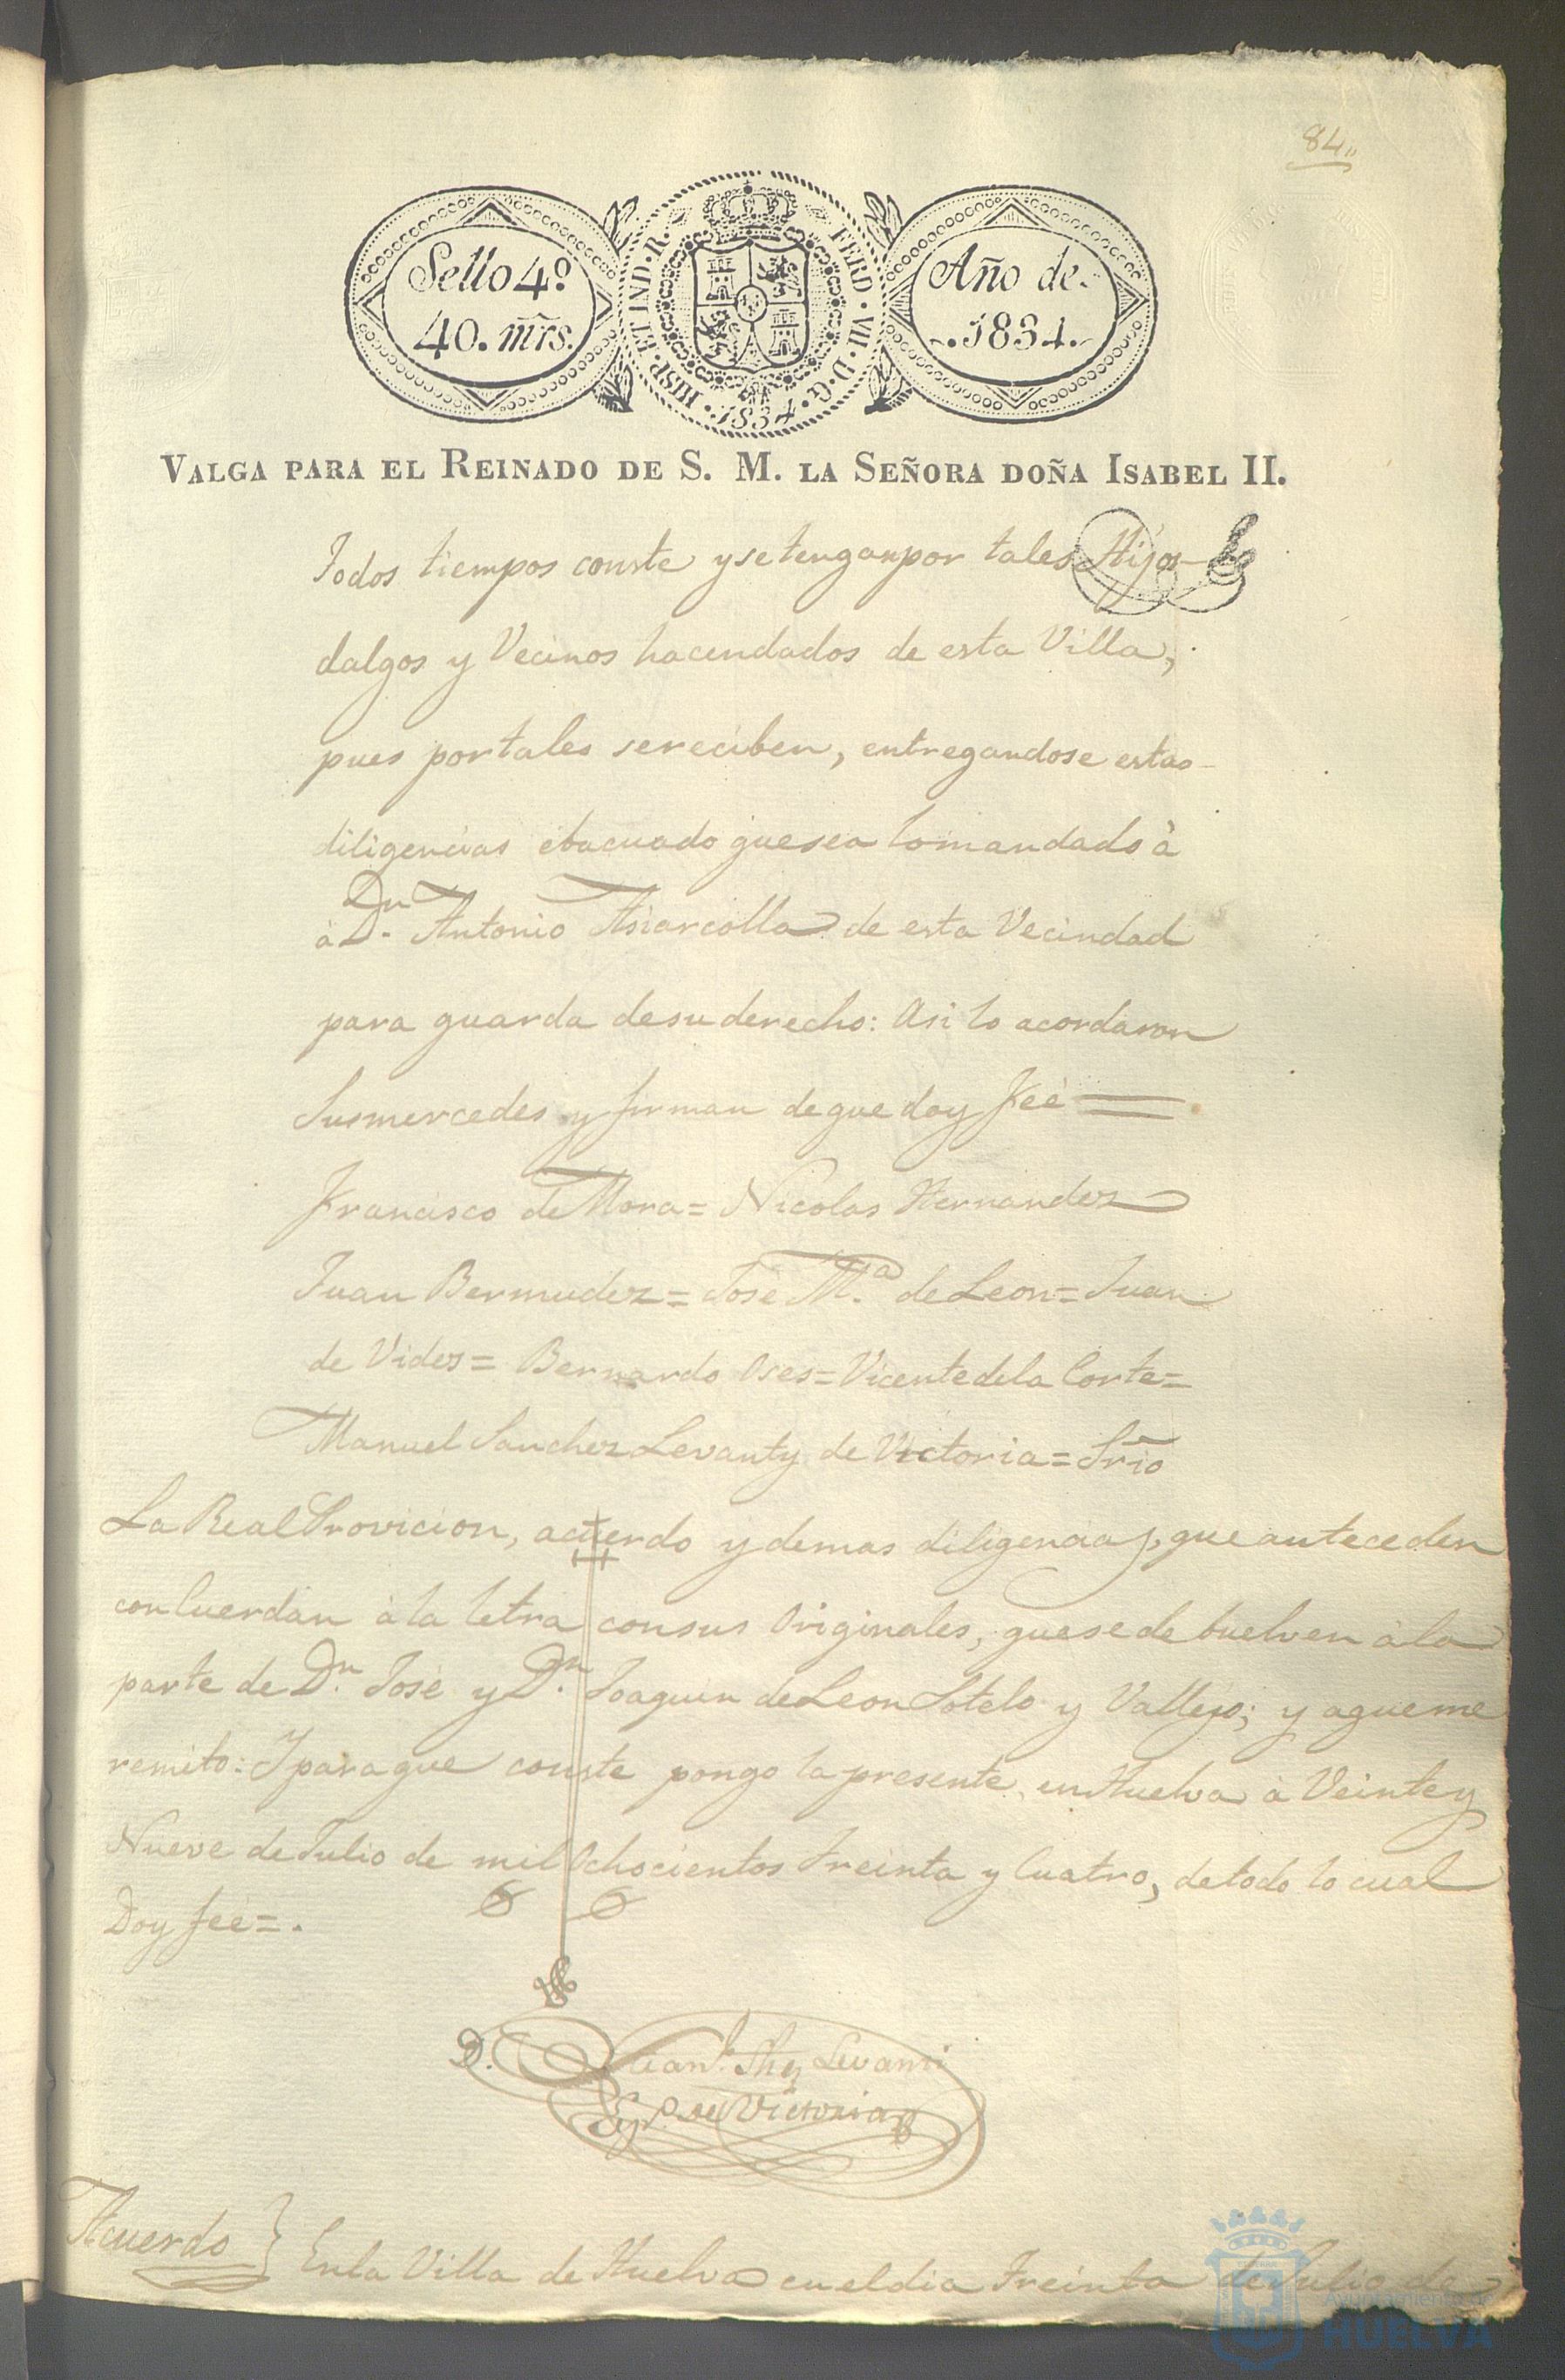 84,,
Sello 4º
40. mrs.
HISP. ET IND. R.
FERD. VII. D. G.
1834.
Año de
1834.
VALGA PARA EL REINADO DE S. M. LA SEÑORA DOÑA ISABEL II.
Todos tiempos conste y se tengan por tales Hijos-
dalgos y Vecinos hacendados de esta Villa,
pues por tales se reciben, entregandose estas
diligencias ebacuado que sea lo mandado à
à Dn. Antonio de esta Vecindad
para guarda de su derecho: Asi lo acordaron
Sus mercedes y firman de que doy Feè =
Francisco de Mora = Nicolas Hernandez
Juan Bermudez = José M.a de Leon = Juan
de Vides = Bernardo Oses = Vicente de la Corte =
Manuel Sanchez Levanty de Victoria = Srio
La Real Provicion, acuerdo y demas diligencias, que anteceden
concuerdan à la letra con sus Originales, que se debuelven à la
parte de Dn. José y Dn. Joaquin de Leon Sotelo y Vallejo; y a que me
remito: Y para que conste pongo la presente en Huelva à Veinte y
Nueve de Julio de mil Ochocientos Treinta y Cuatro, de todo lo cual
Doy feé =.
D. Man.l Shz Levanti
de Victoria
Acuerdo } En la Villa de Huelva en el dia Treinta de Julio de
Ayuntamiento de
HUELVA